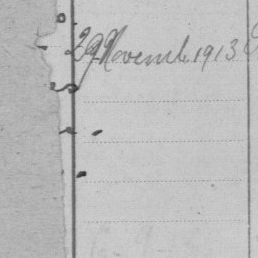 29 Novemb. 1913